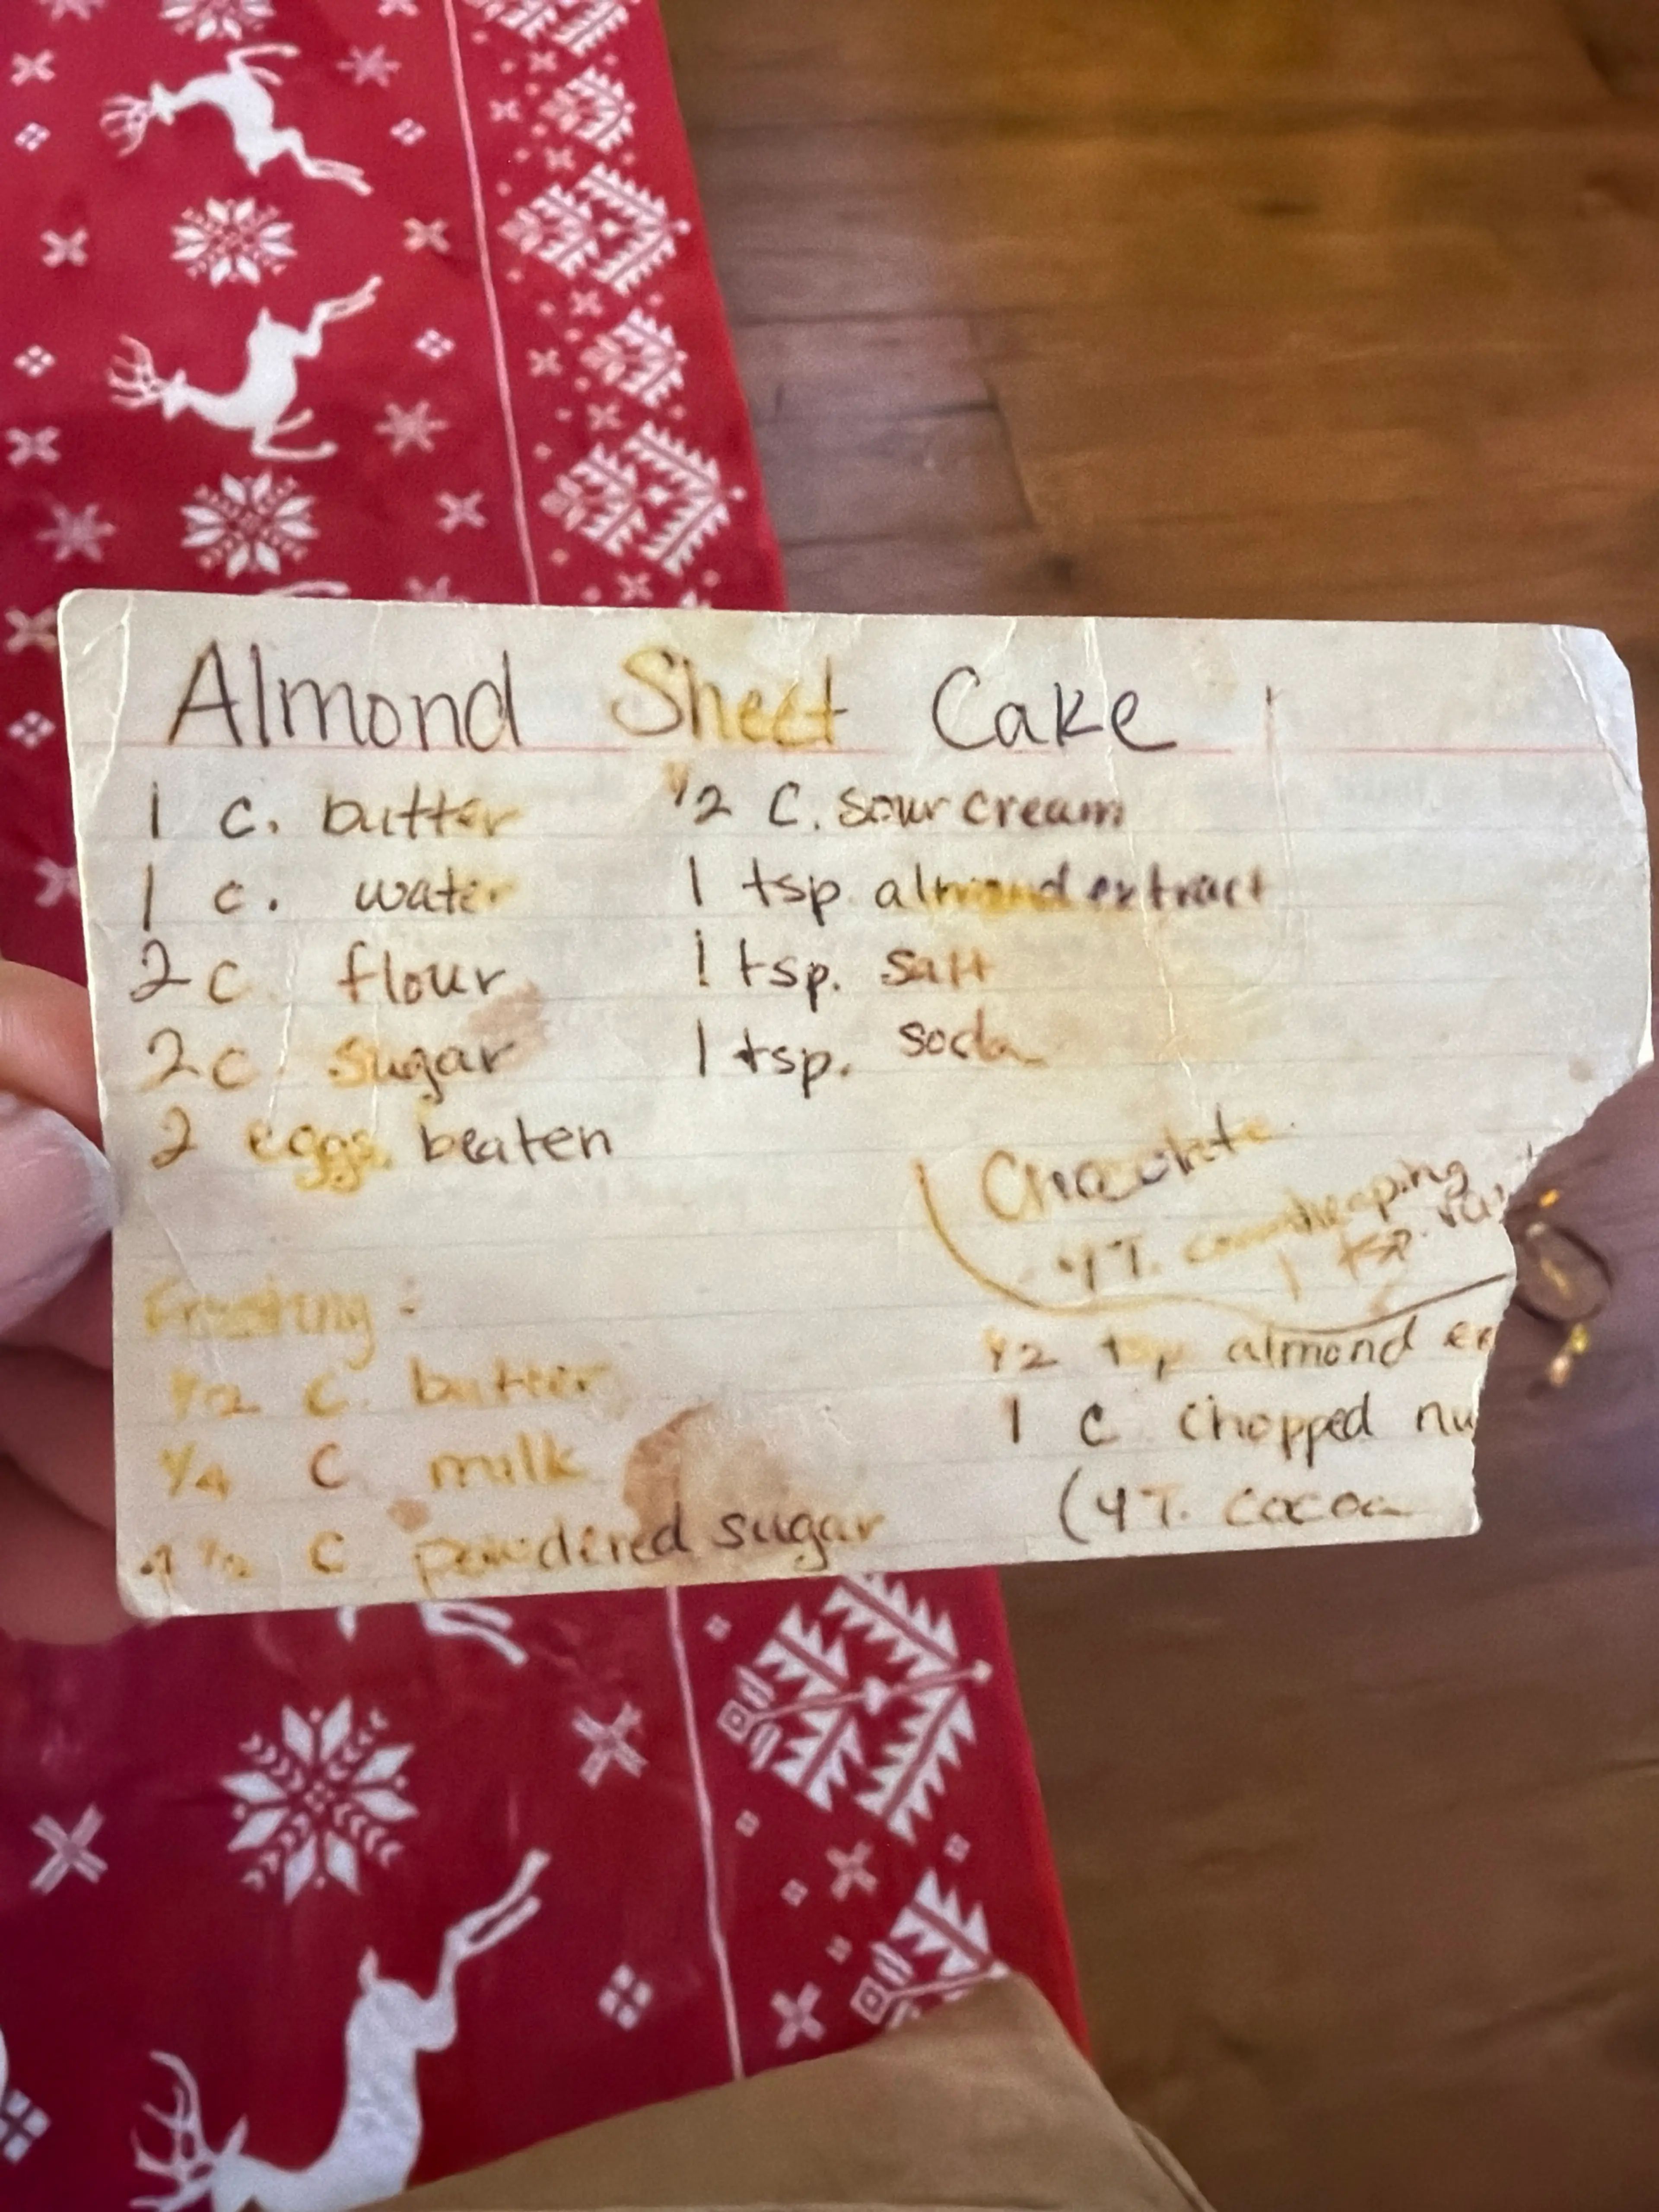 Almond Sheet Cake
1 c. butter
1 c. water
2 c. flour
2 c. sugar
2 eggs beaten
1/2 C. sour cream
1 tsp. almond extract
1 tsp. salt
1 tsp. soda
Chocolate
4 T. heaping
1 tsp.
Frosting:
1/2 C. butter
1/4 C milk
4 1/2 C powdered sugar
1/2 tsp almond
1 C chopped
(4 T. cocoa